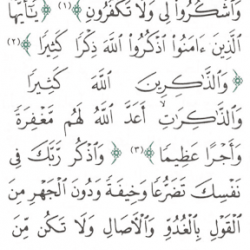 وَاشْكُرُوا لِي وَلَا تَكْفُرُونِ ﴾(١) ﴿ يَٰٓأَيُّهَا
الَّذِينَ ءَامَنُوا اذْكُرُوا اللَّهَ ذِكْرًا كَثِيرًا ﴾(٢)
﴿ وَالذَّٰكِرِينَ اللَّهَ كَثِيرًا
وَالذَّٰكِرَٰتِ أَعَدَّ اللَّهُ لَهُم مَّغْفِرَةً
وَأَجْرًا عَظِيمًا ﴾(٣) ﴿ وَاذْكُر رَّبَّكَ فِي
نَفْسِكَ تَضَرُّعًا وَخِيفَةً وَدُونَ الْجَهْرِ مِنَ
الْقَوْلِ بِالْغُدُوِّ وَالْءَاصَالِ وَلَا تَكُن مِّنَ